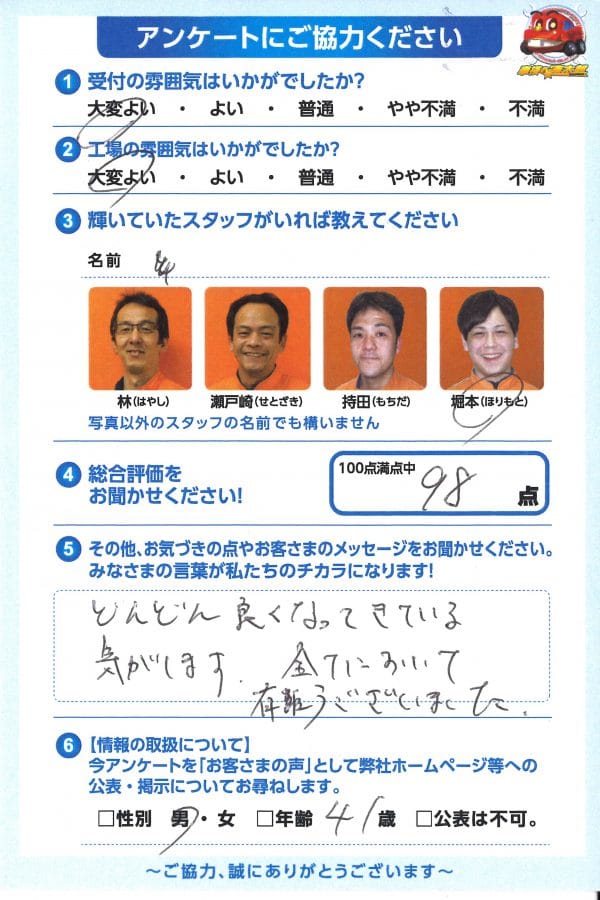 アンケートにご協力ください
1 受付の雰囲気はいかがでしたか?
大変よい ・ よい ・ 普通 ・ やや不満 ・ 不満
2 工場の雰囲気はいかがでしたか?
大変よい ・ よい ・ 普通 ・ やや不満 ・ 不満
3 輝いていたスタッフがいれば教えてください
名前
林(はやし) 瀬戸崎(せとざき) 持田(もちだ) 堀本(ほりもと)
写真以外のスタッフの名前でも構いません
4 総合評価を
お聞かせください!
100点満点中
98 点
5 その他、お気づきの点やお客さまのメッセージをお聞かせください。
みなさまの言葉が私たちのチカラになります!
どんどん良くなってきている
気がします. 全てにおいて
有難うございました.
6 【情報の取扱について】
今アンケートを「お客さまの声」として弊社ホームページ等への
公表・掲示についてお尋ねします。
□性別 男・女 □年齢 41歳 □公表は不可。
～ご協力、誠にありがとうございます～